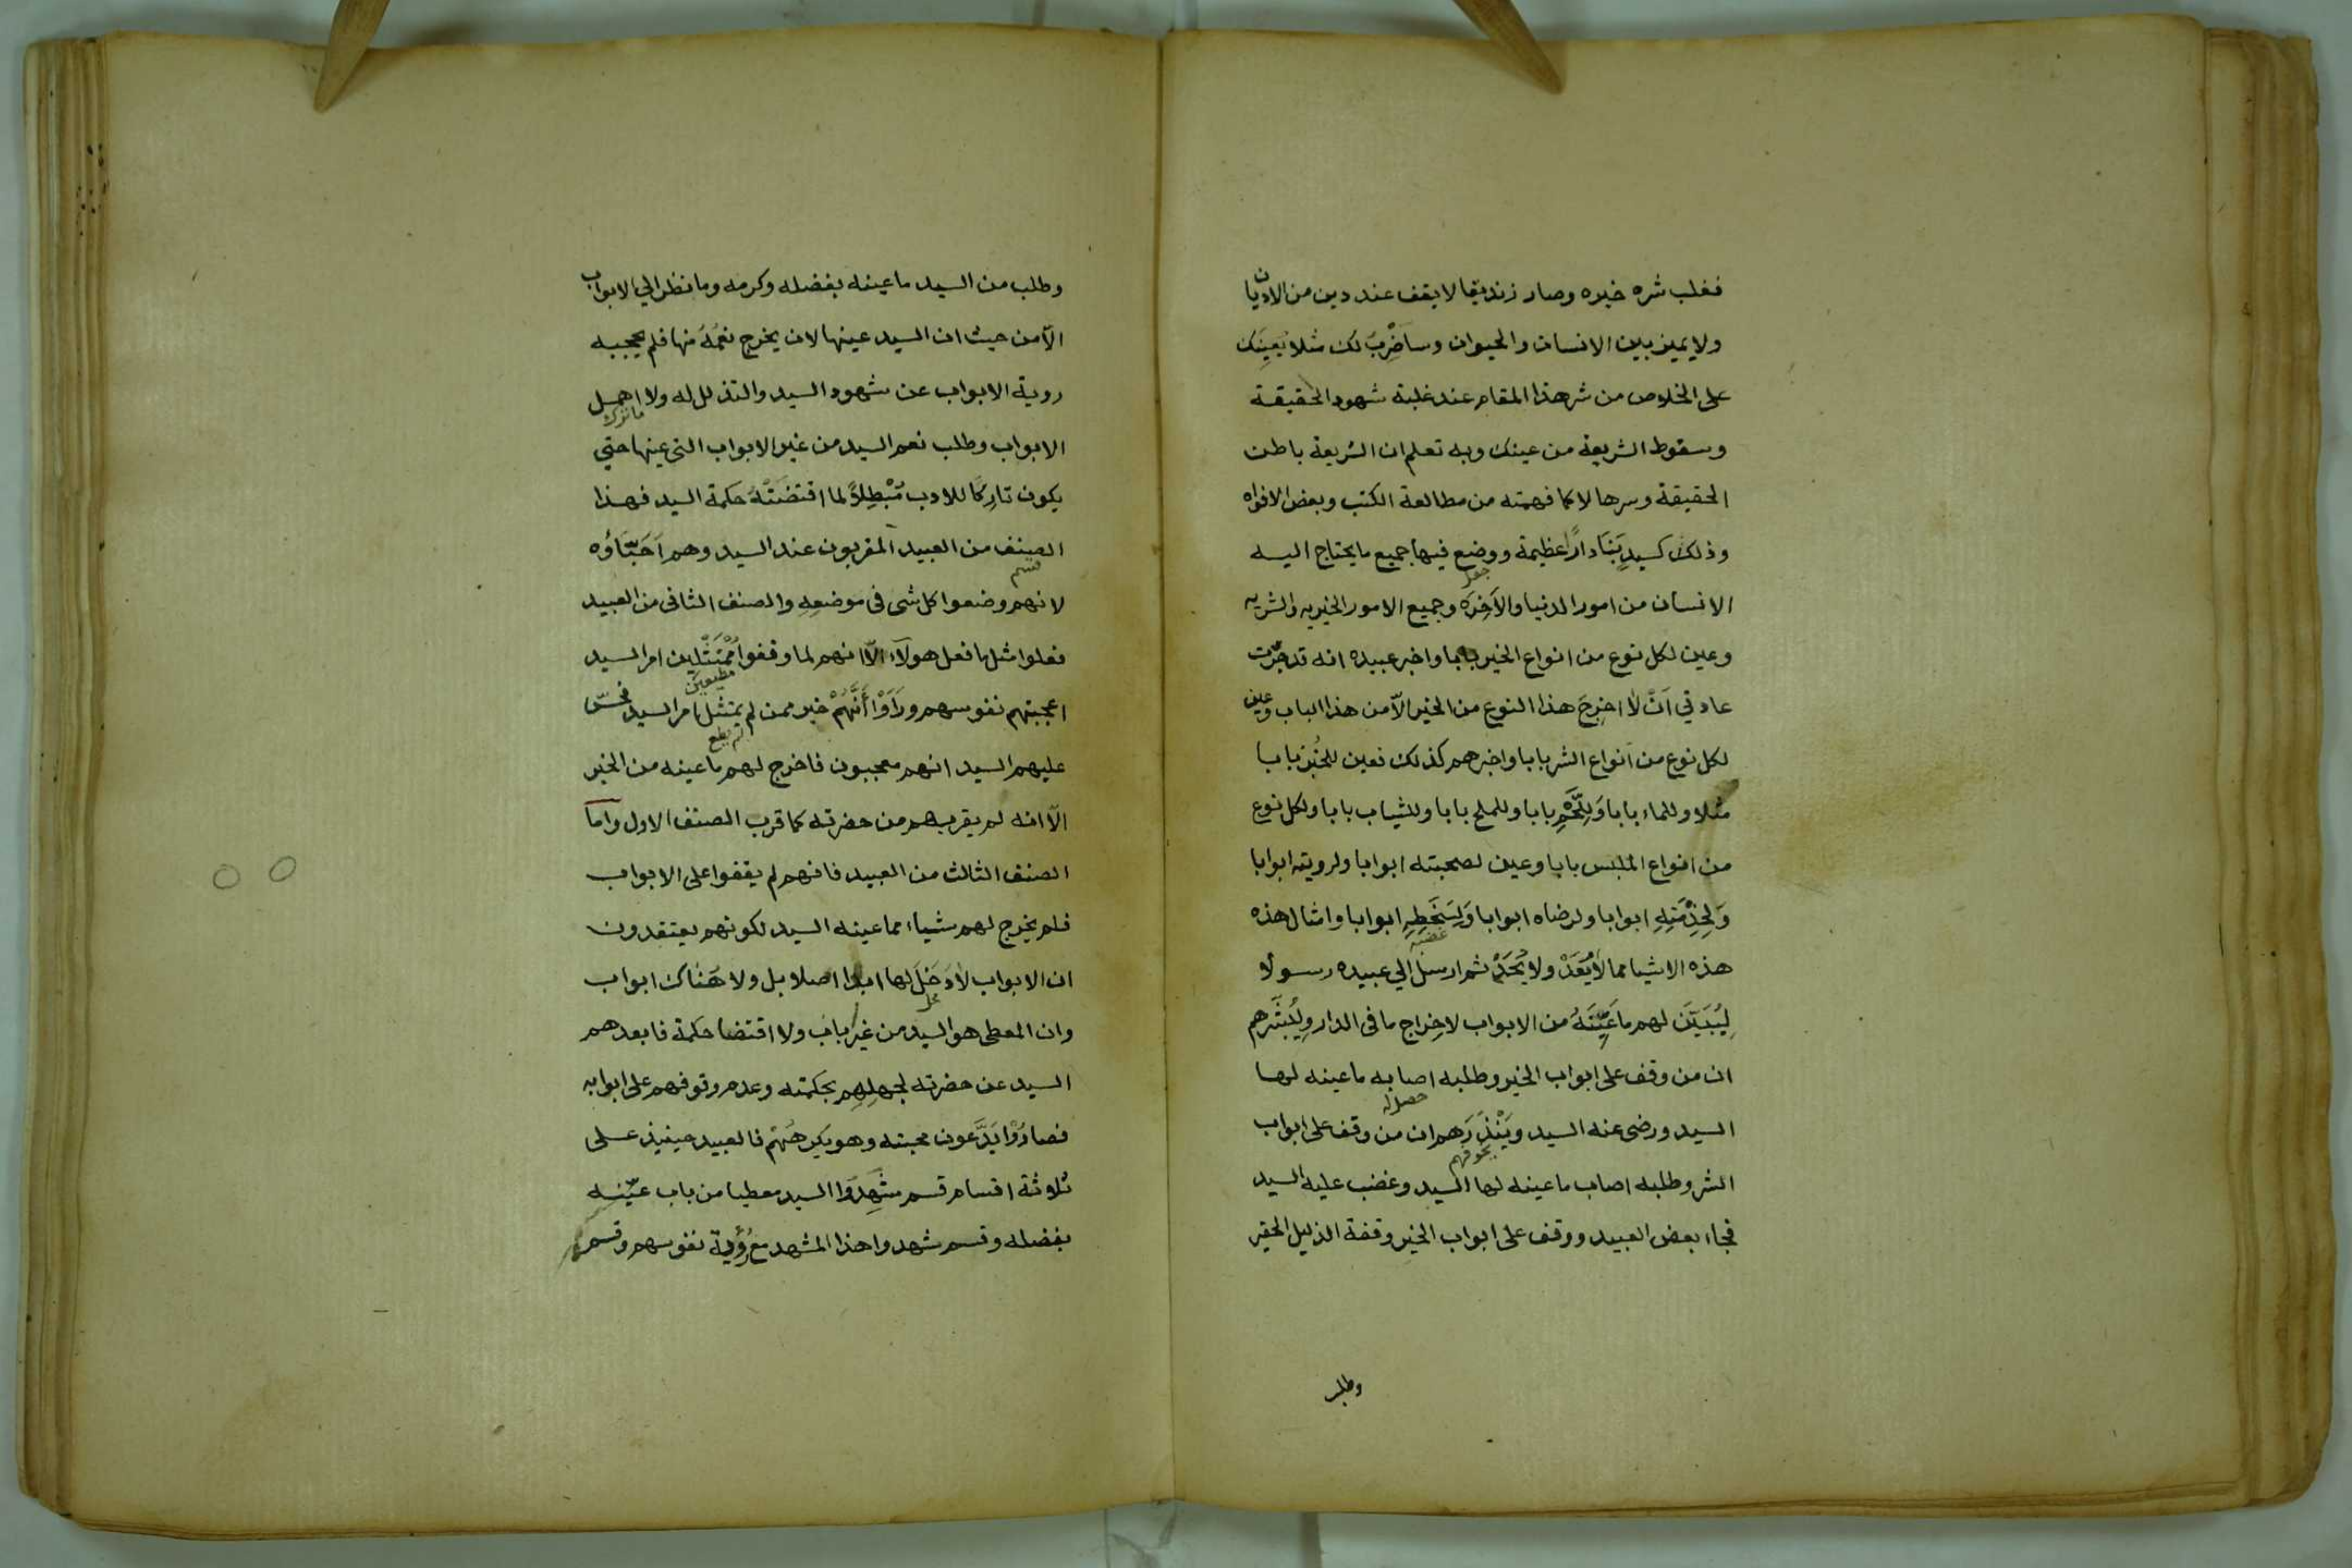 فغلب شره خيره وصار زنديقا لا يقف عند دين من الاديان
ولا يميز بين الانسان والحيوان وساضْرِبُ لك مثلا يُعِينُك
على الخلاص من شر هذا المقام عند غلبة شهود الحقيقة
وسقوط الشريعة من عينك وبه تعلم ان الشريعة باطن
الحقيقة وسرها لا كما فهمته من مطالعة الكتب وبعض الافواه
وذلك كسيدٍ بَنَا دارًا عظيمة ووضع فيها جميع ما يحتاج اليه
جعل
الانسان من امور الدنيا والآخِرَه وجميع الامور الخيريه والشريه
وعين لكل نوع من انواع الخير بابا واخبر عبيده انه قد جَرَت
عادتي اَنْ لا اخرِجَ هذا النوع من الخير الّا من هذا الباب وعين
لكل نوع من انواع الشر بابا واخبرهم كذلك فعين للخُبْز بابا
مثلا وللماء بابا وَلِلَّحْمِ بابا وللملح بابا وللثياب بابا ولكل نوع
من انواع الملبس بابا وعين لصحبته ابوابا ولرويته ابوابا
وَلِخِدْمَتِهِ ابوابا ولرضاه ابوابا وَلِسَخَطِهِ ابوابا وامثال هذه
غضبه
هذه الاشيا مما لا يُعَدْ ولا يُحَدْ ثم ارسل الي عبيده رسولا
لِيُبَيِّنَ لهم ما عَيَّنَهُ من الابواب لاخِراج ما في الدار ولِيُبَشّرهم
ان من وقف على ابواب الخير وطلبه اصابه ما عينه لها
حصل له
السيد ورضى عنه السيد ويَنْذِرَهم ان من وقف على ابواب
يخوفهم
الشر وطلبه اصاب ما عينه لها السيد وغضب عليه السيد
فجاء بعض العبيد ووقف على ابواب الخير وقفة الذليل الحقير
وطلب
وطلب من السيد ما عينه بفضله وكرمه وما نظر الي الابواب
الّا من حيث ان السيد عينها لان يخرج نعمُهُ منها فلم يحجبه
روية الابواب عن شهود السيد والتذلل له ولا اهمل
ما ترك
الابواب وطلب نعم السيد من غير الابواب التى عينها حتي
يكون تارِكًا للادب مُبْطِلاً لما اقتضَتْهُ حكمة السيد فهذا
الصنف من العبيد المقربون عند السيد وهم اَحِبَّاؤُه
قسم
لانهم وضعوا كل شى فى موضعِهِ والصنف الثانى من العبيد
فعلوا مثل ما فعل هولآء الّا انهم لما وقفوا مُمْتَثِلين امر السيد
مطيعين
اعجبتهم نفوسهم ورَاَوْا اَنَّهُمْ خير ممن لم يمتثل امر السيد فحسّ
لم يطع
عليهم السيد انهم معجبون فاخرج لهم ما عينه من الخير
الّا انه لم يقربهم من حضرته كما قرب الصنف الاول واما
الصنف الثالث من العبيد فانهم لم يقفوا على الابواب
فلم يخرج لهم شياء مما عينه السيد لكونهم يعتقدون
ان الابواب لا دَخَلَ لها ابدا اصلا بل ولا هُنَاك ابواب
محل
وان المعطى هو السيد من غير باب ولا اقتضا حكمة فابعدهم
السيد عن حضرته لجهلِهِم بحكمته وعدم وقوفهم على ابوابه
فصارُوْا يَدَّعون محبته وهو يكرهُهُمْ فالعبيد حينيذ على
ثلاثة اقسام قسم شَهِدُوا السيد معطيا من باب عيّنه
بفضله وقسم شهدوا هذا المشهد مع رُؤْية نفوسهم وقسم